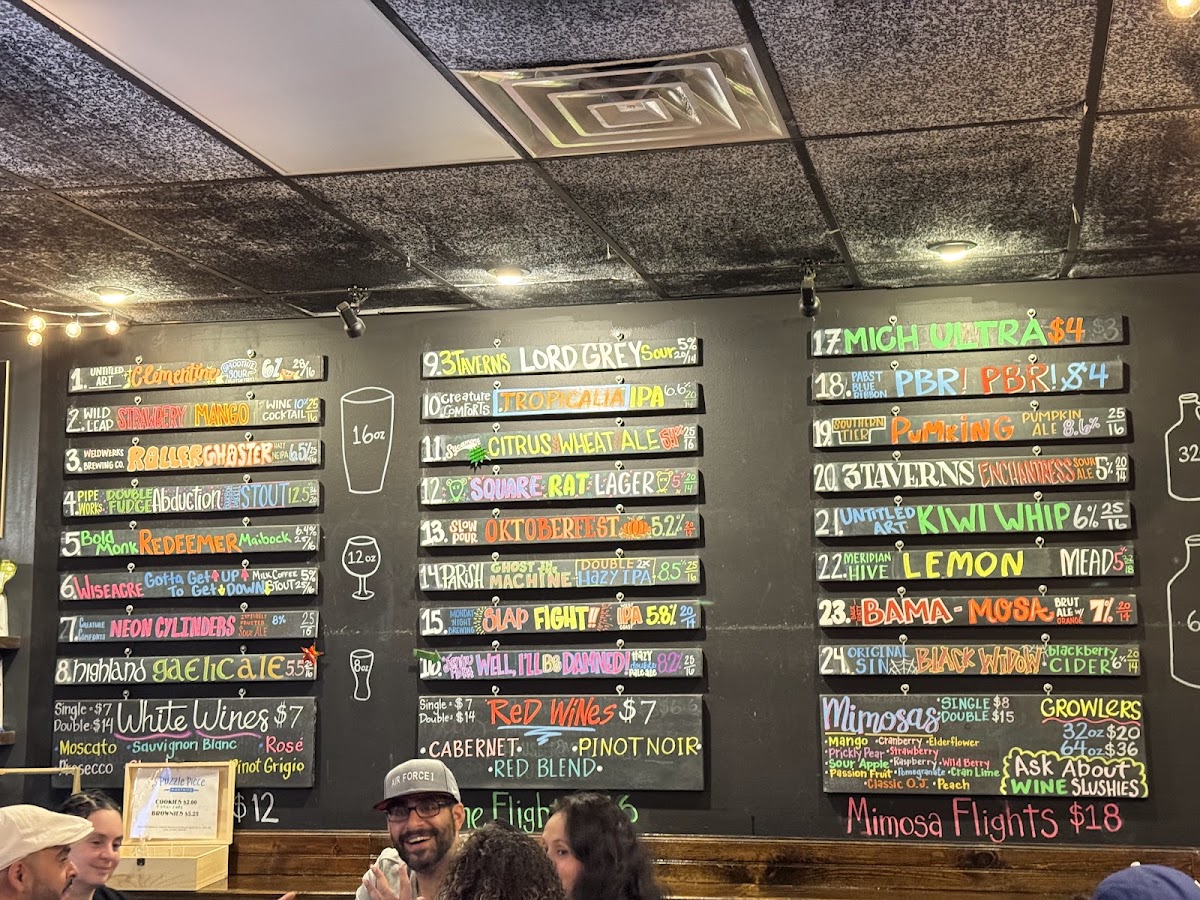 1. UNTITLED ART Clementine SMOOTHIE SOUR 6%
2. WILD LEAP STRAWBERRY MANGO WINE COCKTAIL 10% 25/16
3. WELDWERKS BREWING CO. ROLLERGHOSTER HAZY NEIPA 6.5% 25/16
4. PIPE WORKS DOUBLE FUDGE Abduction STOUT 12.5%
5. Bold Monk REDEEMER Maibock 6.4% 25/16
6. WISEACRE Gotta Get UP To Get DOWN MILK COFFEE STOUT 5% 25/16
7. CREATURE COMFORTS NEON CYLINDERS SOUR ALE 8% 25/18
8. highland gaelic ale 5.5
Single = $7
Double = $14
White Wines $7
Moscato • Sauvignon Blanc • Rosé
Prosecco
Pinot Grigio
$12
PUZZLE PIECE
COOKIES $2.00
BROWNIES $5.25
16oz
12oz
8oz
9. 3TAVERNS LORD GREY Sour 5% 20/14
10 Creature Comforts TROPICALIA IPA 6.6% 20/14
11. Sycamore CITRUS WHEAT ALE 25/16
12 SQUARE RAT LAGER 5% 20/14
13. SLOW POUR OKTOBERFEST 5.2%
14 PARISH GHOST IN THE MACHINE DOUBLE HAZY IPA 8.5% 25/16
15. MONDAY NIGHT BREWING SLAP FIGHT!! IPA 5.8% 20/14
16. WELL, I'LL BE DAMNED! HAZY DOUBLE PALE ALE 8.2% 25/16
Single = $7
Double = $14
RED WINES $7
• CABERNET • • PINOT NOIR •
• RED BLEND •
AIR FORCE 1
17. MICH ULTRA $4 $3
18. PABST BLUE RIBBON PBR! PBR! $4
19. SOUTHERN TIER PUMKING PUMPKIN ALE 8.6% 25/16
20. 3TAVERNS ENCHANTRESS SOUR ALE 5% 20/14
21. UNTITLED ART KIWI WHIP 6% 25/16
22. MERIDIAN HIVE LEMON MEAD 5% 32/18
23. BAMA-MOSA BRUT ALE W/ ORANGE 7% 20/14
24. ORIGINAL SIN BLACK WIDOW blackberry CIDER 6% 20/14
Mimosas • SINGLE $8
DOUBLE $15
• Mango • Cranberry • Elderflower
Prickly Pear • Strawberry
Sour Apple • Raspberry • Wild Berry
• Passion Fruit • Pomegranate • Cran Lime
• Classic O.J. • Peach
GROWLERS
32oz $20
64oz $36
ASK ABOUT
WINE SLUSHIES
Mimosa Flights $18
32
6